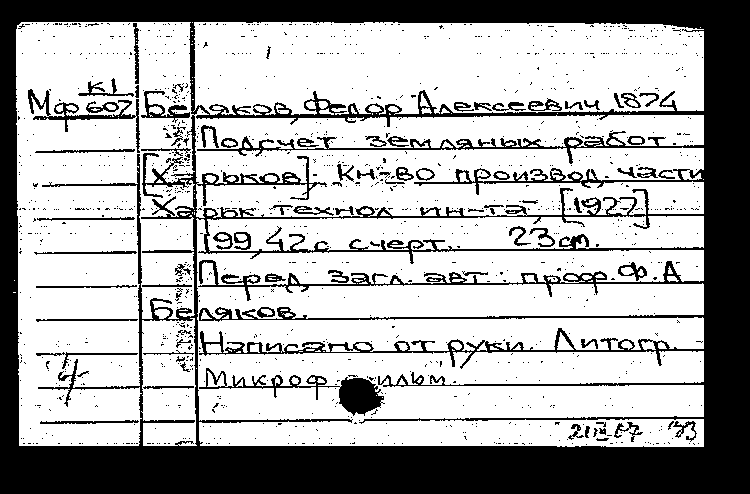 К1
Мф 607 Беляков, Федор Алексеевич, 1874
Подсчет земляных работ.
[Харьков]; Кн-во производ. части
Харьк. технол ин-та, [1927]
199, 42 с с черт. 23 cm.
Перед загл. авт: проф. Ф. А
Беляков.
Написано от руки. Литогр.
Микрофильм.
4